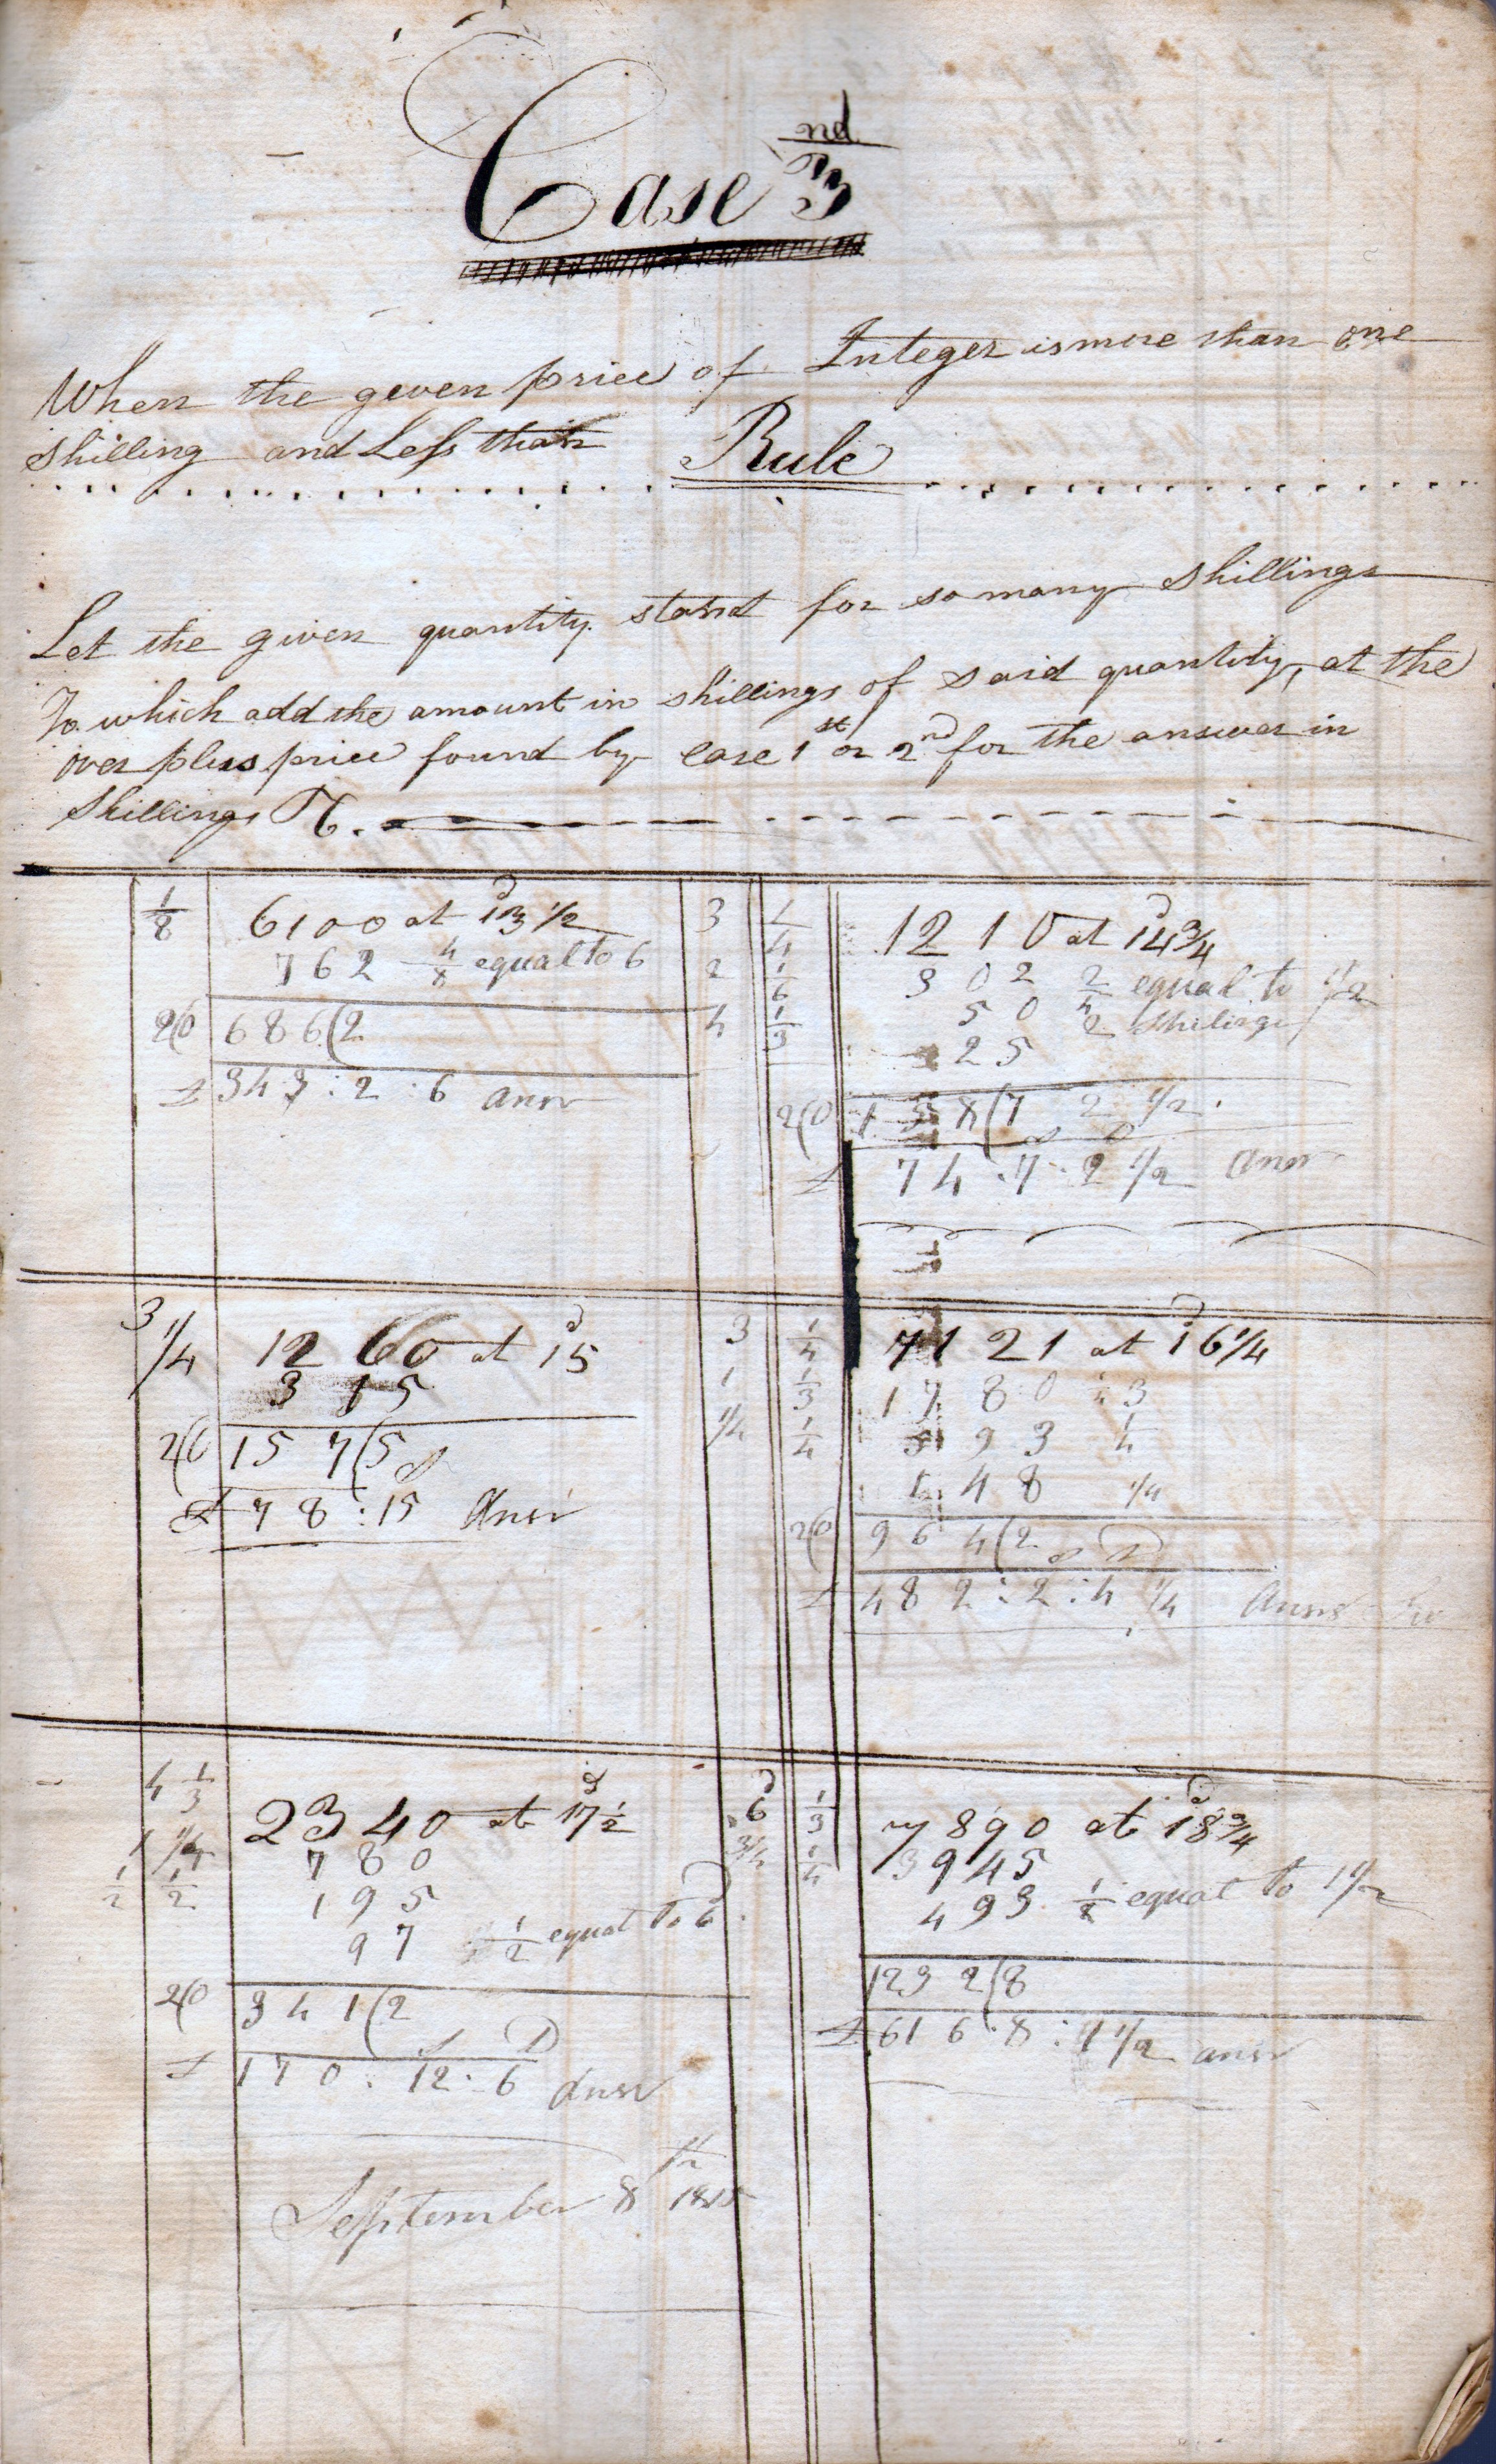 Case 3nd
When the given price of Integer is more than one
shilling and Less than
Rule
Let the given quantity stand for so many shillings
To which add the amount in shillings of said quantity, at the
over plus price found by case 1st or 2nd for the answer in
Shillings
1/8 6100 at 13 1/2 d
762 4/8 equal to 6
20 686(2
£ 343 : 2 : 6 Answ
3 1/4 1210 at 14 3/4 d
2 1/6 302 2/4 equal to 1/2
4 1/3 50 shilings
25
20 148(7 2 1/2
£ 74 : 7 : 2 1/2 Answ
3 1/4 1260 at 15 d
315
20 157(5
£ 78 : 15 Answ
3 1/4 7121 at 16 1/4 d
1 1/3 1780 : 3
1/4 1/4 593 4
148 1/4
20 964(2 s D
£ 482 : 2 : 4 1/4 Answ
4 1/3 2340 at 17 1/2 d
1 1/4 780
1/2 1/2 195
97 1/2 equal to 6
20 341(2
s D
£ 170 : 12 : 6 Answ
September 8th 1815
6d 1/3 7890 at 18 3/4 d
3/4 1/4 3945
493 1/8 equal to 1 1/2
1232(8
£ 616 : 8 : 1 1/2 answ